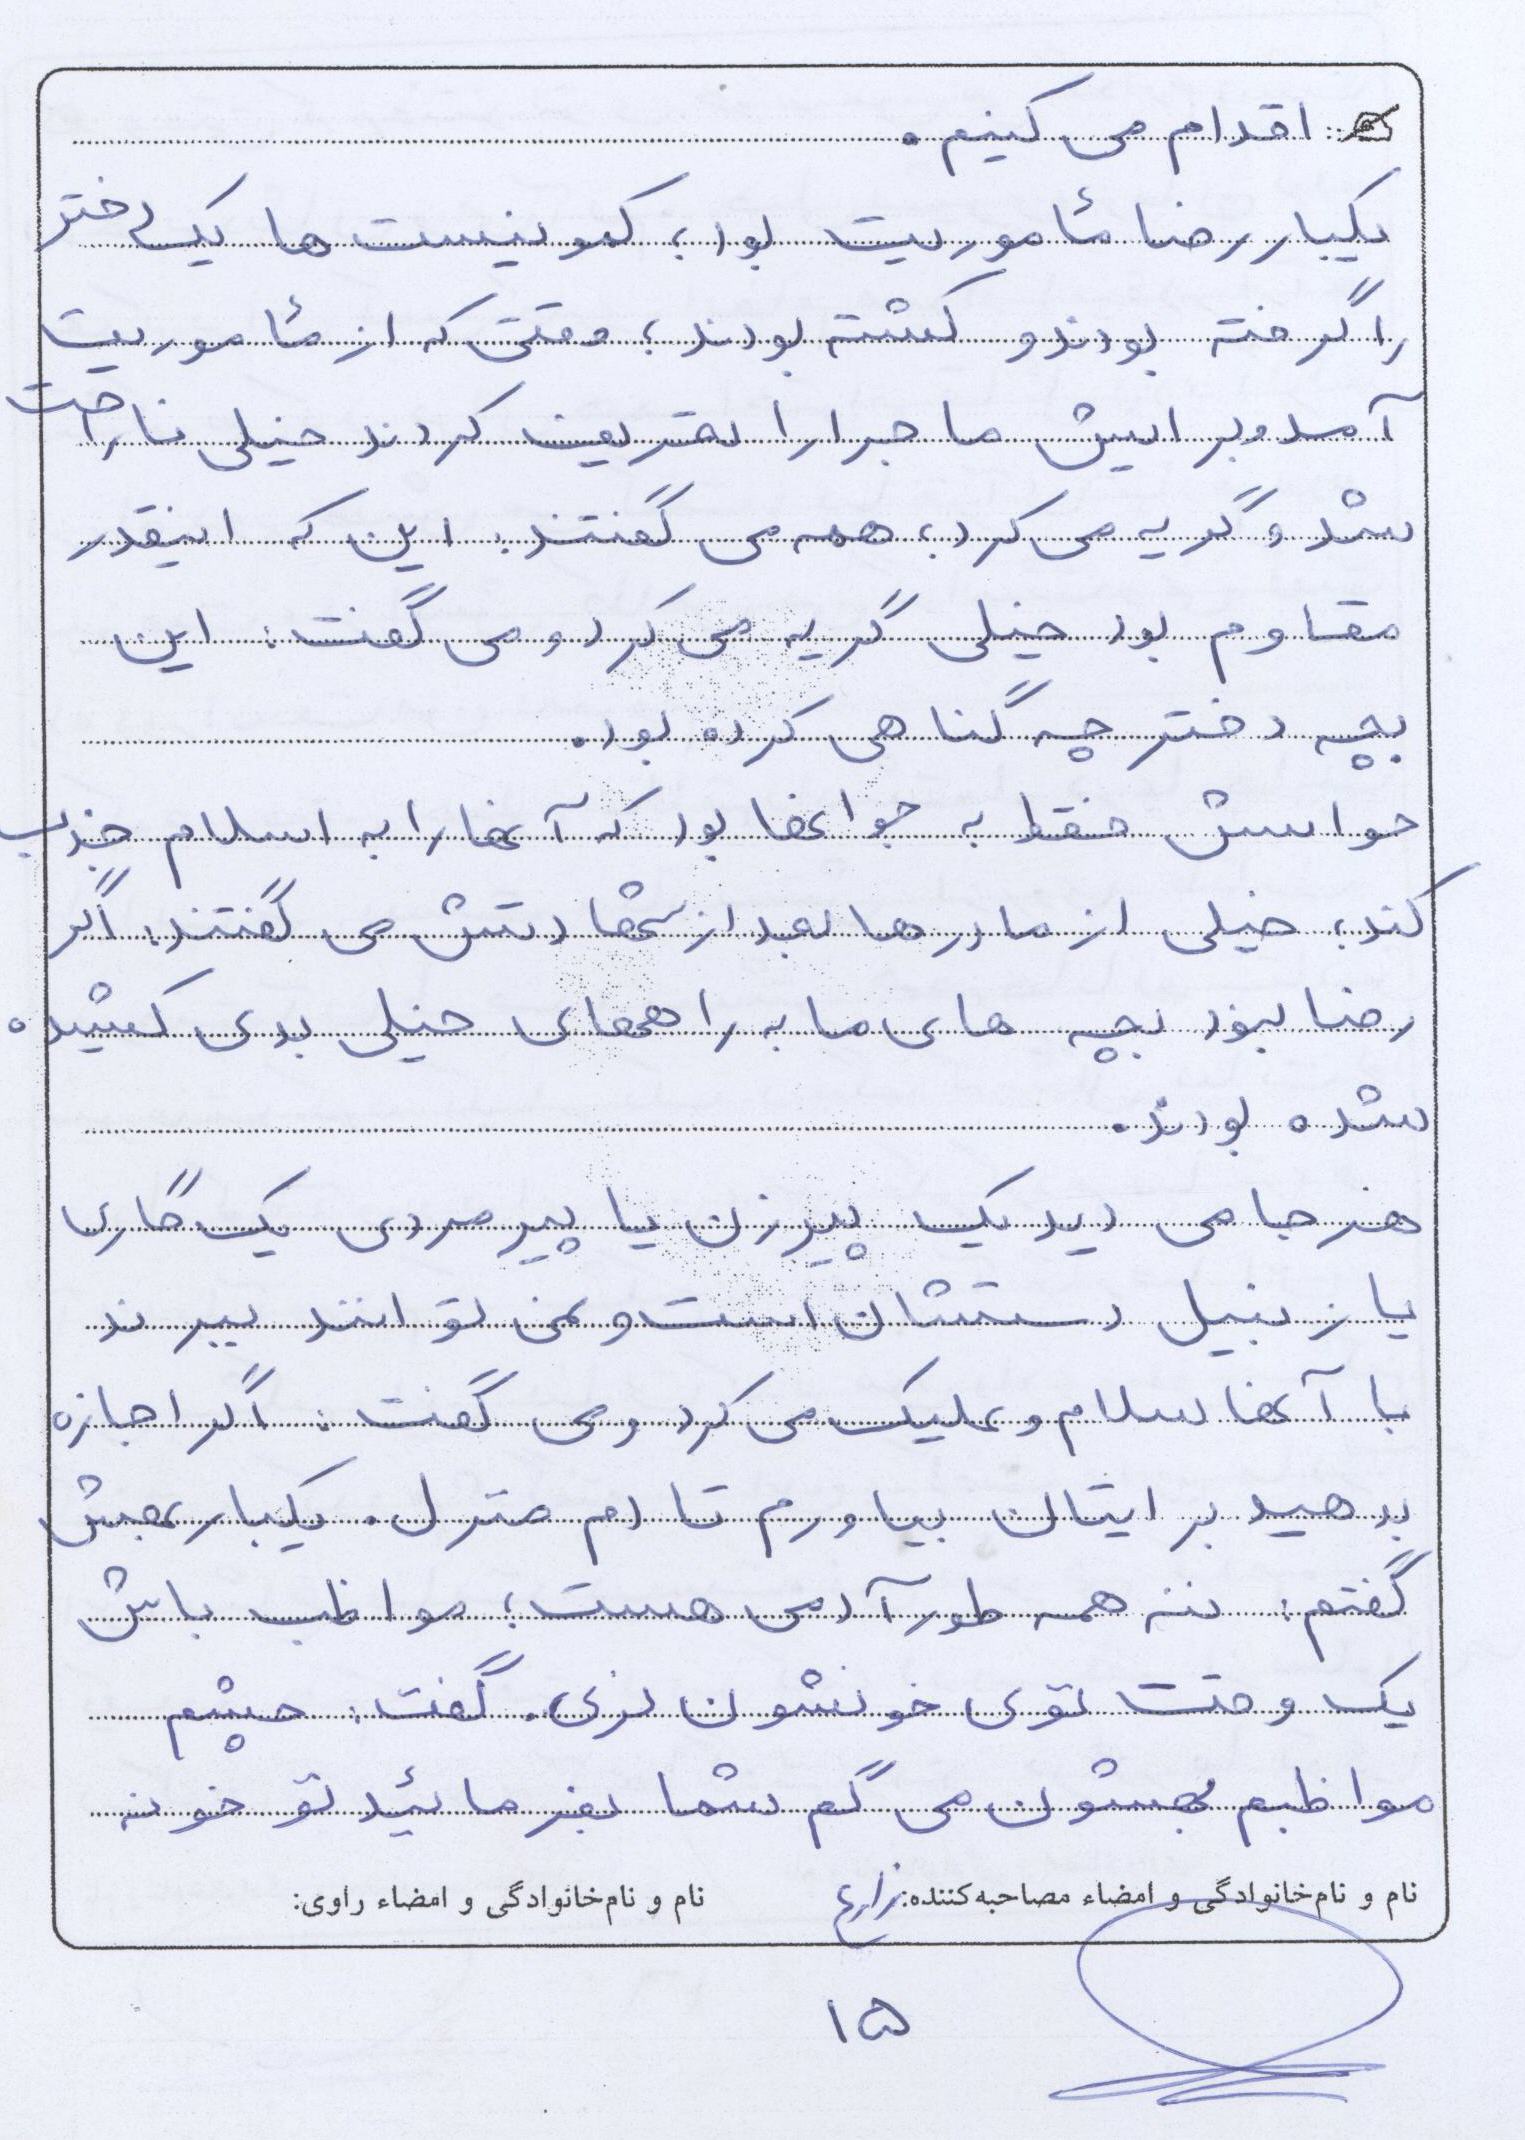 اقدام می کنیم.
یکبار رضا مأموریت بود؛ کمونیست ها یک دختر
را گرفته بودند و کشته بودند؛ وقتی که از مأموریت
آمد و برایش ماجرا را تعریف کردند خیلی ناراحت
شد و گریه می کرد؛ همه می گفتند: این که اینقدر
مقاوم بود خیلی گریه می کرد و می گفت: این
بچه دختر چه گناهی کرده بود.
حواسش فقط به جوانها بود که آنها را به اسلام جذب
کند؛ خیلی از مادرها بعد از شهادتش می گفتند: اگر
رضا نبود بچه های ما به راههای خیلی بدی کشیده
شده بودند.
هر جا می دید یک پیرزن یا پیرمردی یک گاری
یا زنبیل دستشان است و نمی توانند ببرند
با آنها سلام و علیک می کرد و می گفت: اگر اجازه
بدهید برایتان بیاورم تا دم منزل. یکبار بهش
گفتم: ننه همه طور آدمی هست؛ مواظب باش
یک وقت توی خونشون نری. گفت: چشم
مواظبم بهشون می گم شما بفرمائید تو خونه
نام و نام‌خانوادگی و امضاء مصاحبه‌کننده: زارع
نام و نام‌خانوادگی و امضاء راوی:
۱۵